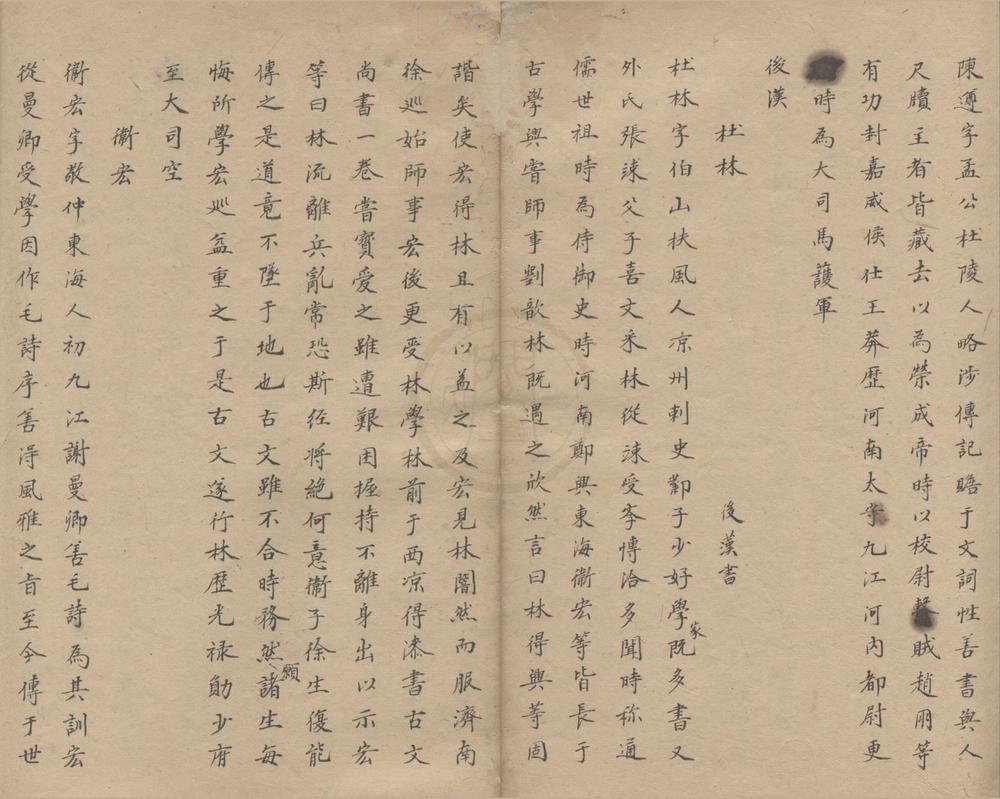 陳遵字孟公杜陵人略涉傳記贍于文詞性善書與人
尺牘主者皆藏去以為榮成帝時以校尉擊賊趙朋等
有功封嘉威侯仕王莽歷河南太守九江河內都尉更
時為大司馬護軍
後漢
杜林 後漢書
杜林字伯山扶風人凉州刺史鄴子少好學家既多書又
外氏張竦父子喜文采林從竦受學博洽多聞時称通
儒世祖時為侍御史時河南鄭興東海衛宏等皆長于
古學興嘗師事劉歆林既遇之欣然言曰林得興等固
諧矣使宏得林且有以益之及宏見林闇然而服濟南
徐巡始師事宏後更受林學林前于西凉得漆書古文
尚書一卷嘗寶受之雖遭艱困握持不離身出以示宏
等曰林流離兵亂常恐斯經將絕何意衛子徐生復能
傳之是道竟不墜于地也古文雖不合時務然願諸生每
悔所學宏巡益重之于是古文遂行林歷光祿勛少府
至大司空
衛宏
衛宏字敬仲東海人初九江謝曼卿善毛詩為其訓宏
從曼卿受學因作毛詩序善得風雅之旨至今傳于世